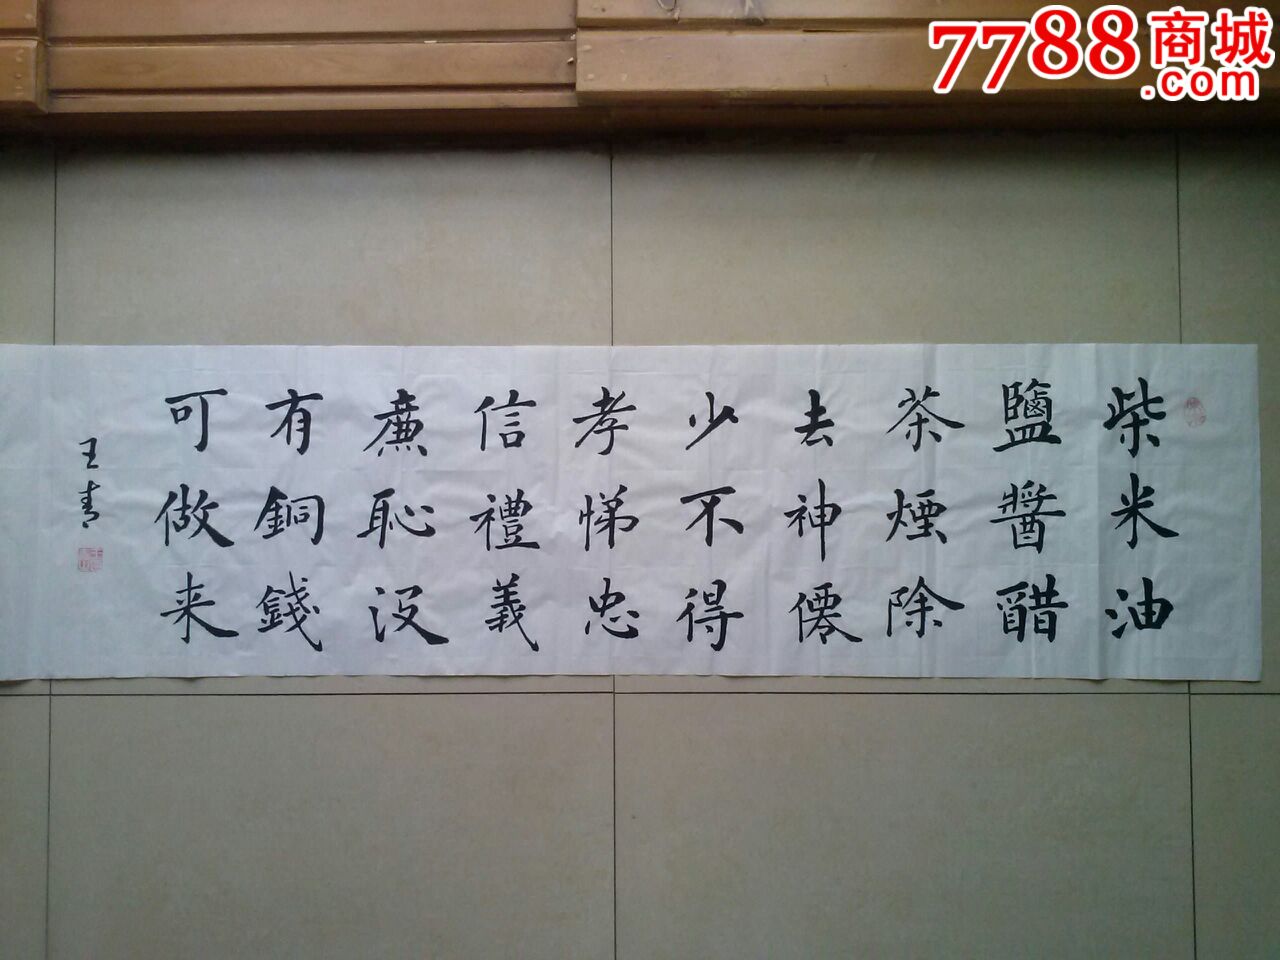 柴米油
鹽醬醋
茶煙除
去神僊
少不得
孝悌忠
信禮義
廉恥没
有銅錢
可做来
王青
7788商城
.com